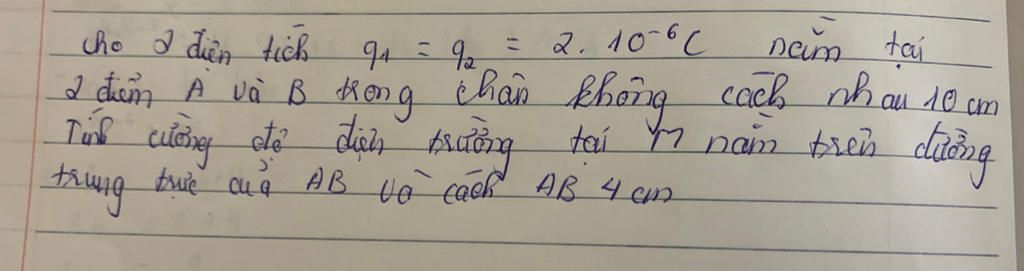 Cho 2 điện tích q₁ = q₂ = 2.10⁻⁶C nằm tại
2 điểm A và B trong chân không cách nhau 10 cm
Tính cường độ điện trường tại M nằm trên đường
trung trực của AB và cách AB 4 cm